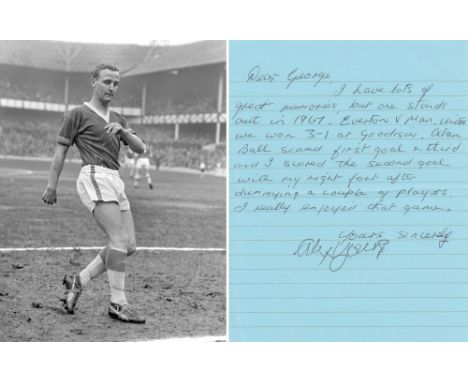 Dear George,
I have lots of
great memories but one stands
out in 1967. Everton v Man. United
we won 3-1 at Goodison. Alan
Ball scored first goal & third
and I scored the second goal
with my right foot after
dummying a couple of players.
I really enjoyed that game.
Yours sincerely
Alex Young